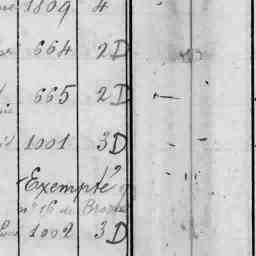 1809 4
664 2D
665 2D
1001 3D
Exempté
n° 16 de
1002 3D